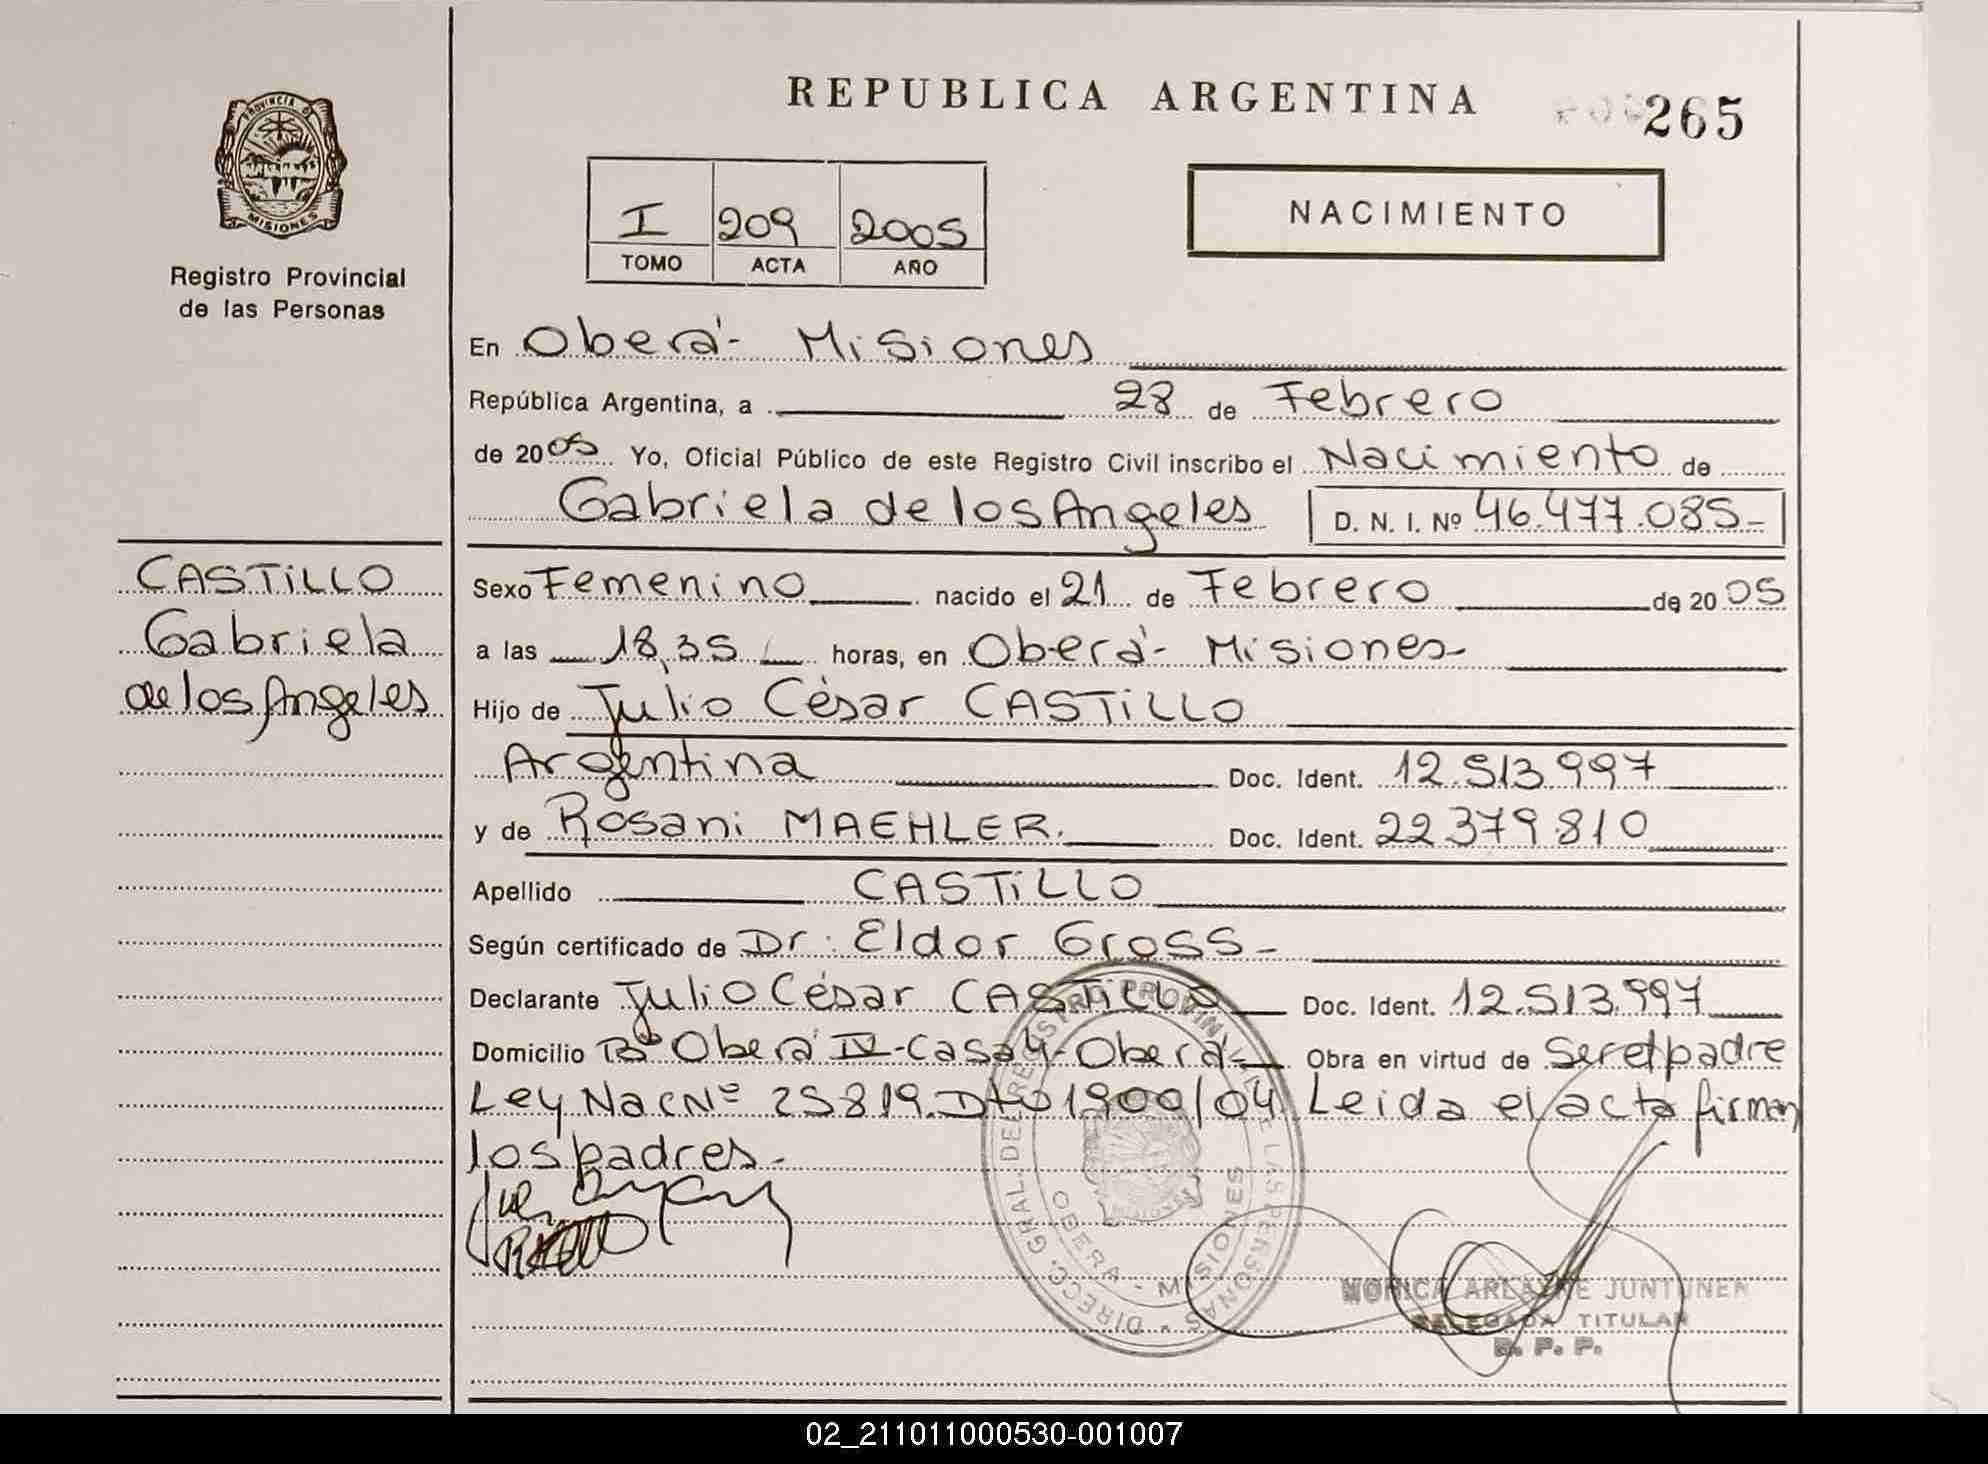 REPUBLICA ARGENTINA
265
PROVINCIA DE
MISIONES
Registro Provincial
de las Personas
I 209 2005
TOMO ACTA AÑO
NACIMIENTO
En Oberá- Misiones
República Argentina, a 28 de Febrero
de 2005 Yo, Oficial Público de este Registro Civil inscribo el Nacimiento de
Gabriela de los Angeles D. N. I. Nº 46.477.085-
CASTiLLO
Gabriela
de los Angeles
Sexo Femenino nacido el 21 de Febrero de 2005
a las 18,35 horas, en Oberá- Misiones-
Hijo de Julio César CASTiLLO
Argentina Doc. Ident. 12.513.997
y de Rosani MAEHLER. Doc. Ident. 22.379.810
Apellido CASTiLLO
Según certificado de Dr: Eldor Gross-
Declarante Julio César CASTiLLO Doc. Ident. 12.513.997
Domicilio Bº Oberá IV-Casa 4-Oberá- Obra en virtud de Ser el padre
Ley Nac Nº 25819. Dto 1900/04 Leida el acta firman
los padres.-
DIRECC. GRAL. DEL REGISTRO PROVINCIAL DE LAS PERSONAS
OBERA - MISIONES
MONICA ARLAINE JUNTUNEN
DELEGADA TITULAR
R. P. P.
02_211011000530-001007